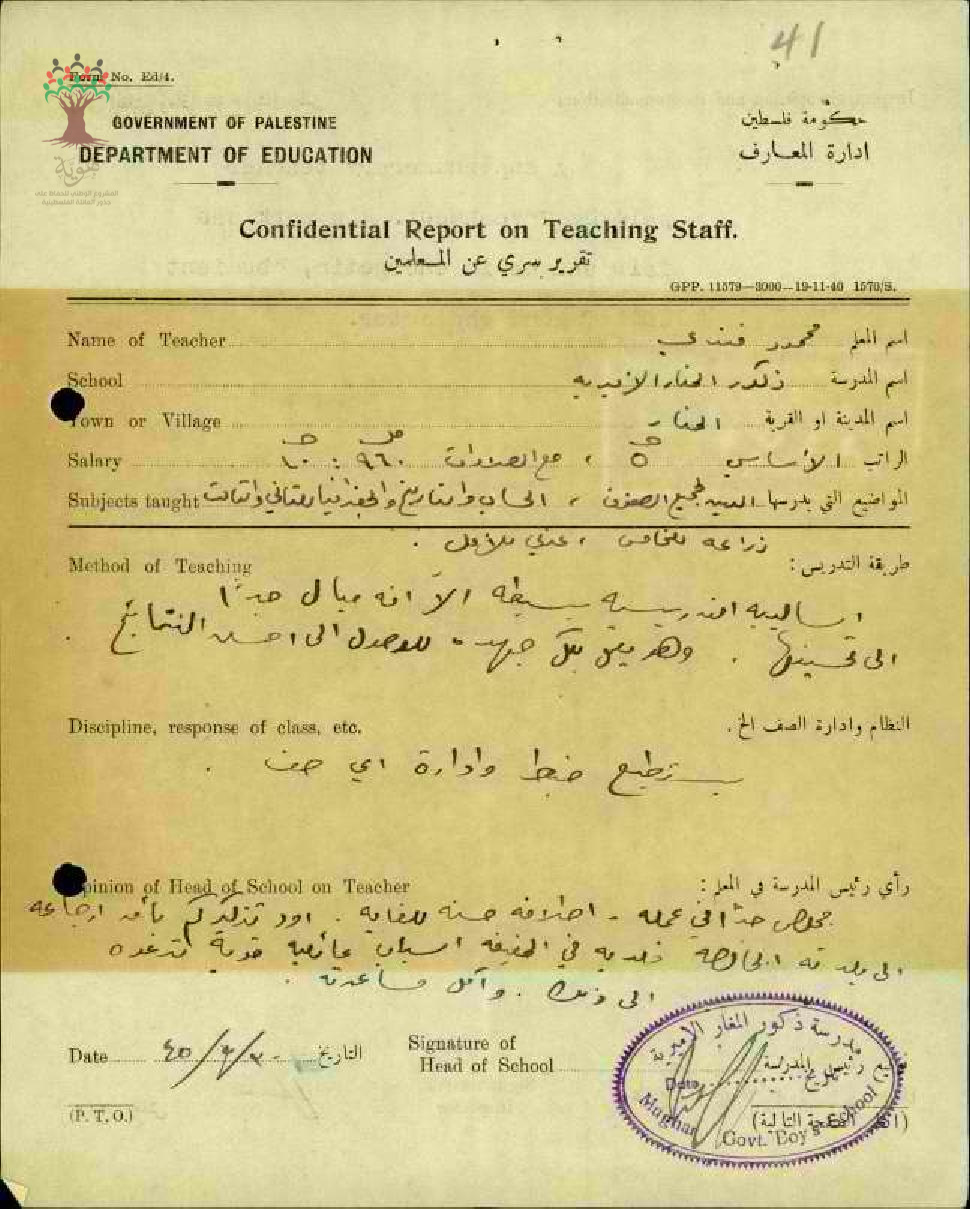 41
Form No. Ed/4.
GOVERNMENT OF PALESTINE
حكومة فلسطين
DEPARTMENT OF EDUCATION
ادارة المعارف
هوية
المشروع الوطني للحفاظ على
جذور العائلة الفلسطينية
Confidential Report on Teaching Staff.
تقرير سري عن المعلمين
GPP. 11579—3000—19-11-40 1570/S.
Name of Teacher محمود اسم المعلم
School ذكور المغار الاميرية اسم المدرسة
Town or Village المغار اسم المدينة او القرية
Salary الاساسي ٥ ، مع العلاوات ٩٦٠ : ١٠ الراتب
Subjects taught المواضيع التي يدرسها الدين لجميع الصفوف ، الحساب والتاريخ والجغرافيا للثاني والثالث
زراعة للخامس ، للاول .
Method of Teaching
طريقة التدريس :
اساليبه التدريسية بسيطة الا انه ميال جدا
الى تحسينها . وهو يعمل بكل جهده للوصول الى احسن النتائج .
Discipline, response of class, etc.
النظام وادارة الصف الخ .
يستطيع ضبط وادارة اي صف .
Opinion of Head of School on Teacher
رأي رئيس المدرسة في المعلم :
مخلص جدا في عمله . اخلاقه حسنة للغاية . اود تذكيركم بأمر ارجاعه
الى بلدته الخالصة فلديه في الحقيقة اسباب عائلية قوية تدعوه
الى ذلك . وآمل مساعدته .
Date التاريخ
Signature of
Head of School
رئيس المدرسة
مدرسة ذكور المغار الاميرية
Date
Mughar Govt. Boy's School
(P. T. O.)
التالية)